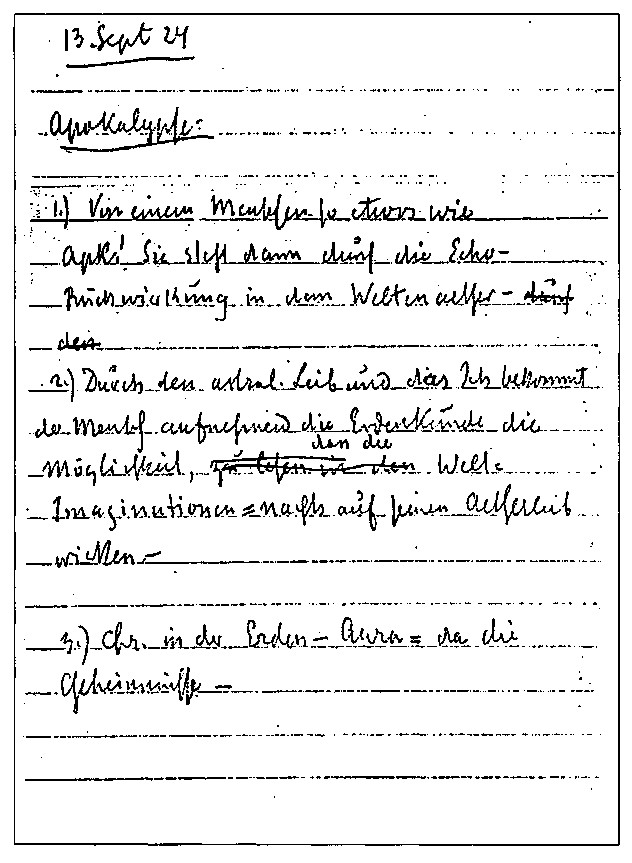 13. Sept 24
Apokalypse:
1.) Von einem Menschen so etwas wie
Apk! Sie steht dann durch die Echo-
Rückwirkung in dem Weltenaether – durch
den
2.) Durch den astral. Leib und das Ich bekommt
der Mensch aufnehmend die Erdenkunde die
dass die
Möglichkeit, zu lesen in den Welt-
Imaginationen = nachts auf seinen Aetherleib
wirken –
3.) Chr. in der Erden-Aura = da die
Geheimnisse –